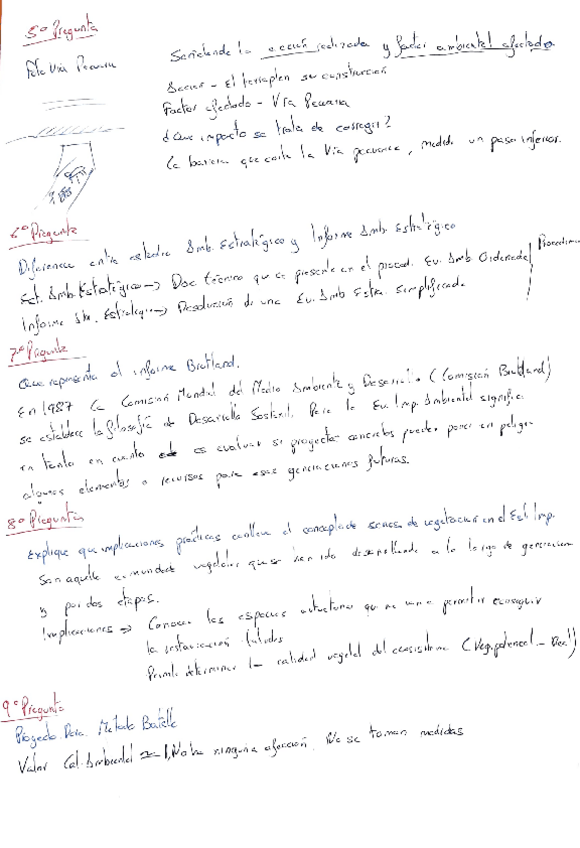 5º Pregunta
Foto Vía Pecuaria
Señalando la acción realizada y factor ambiental afectado
Acción - El terraplén su construcción
Factor afectado - Vía Pecuaria
¿Que impacto se trata de corregir?
La barrera que corta la Vía pecuaria, medida un paso inferior.
6º Pregunta
Diferencia entre estudio Amb. Estratégico y Informe Amb. Estratégico
Est. Amb. Estratégico → Doc técnico que se presenta en el proced. Ev. Amb Ordenada
Informe Amb. Estratégico → Resolución de una Ev. Amb Estra. Simplificada
7º Pregunta
Que representa el informe Brutland.
En 1987 la Comisión Mundial del Medio Ambiente y Desarrollo (Comisión Brutland)
se establece la filosofía de Desarrollo Sostenit. Para la Ev. Imp. Ambiental significa
en tanto en cuanto es evaluar si proyectos concretos pueden poner en peligro
algunos elementos o recursos para esas generaciones futuras.
8º Pregunta
Explique que implicaciones prácticas conlleva el concepto de series de vegetación en el Est Imp.
Son aquella comunidad vegetales que se han ido desarrollando a lo largo de generacion
y por dos etapas.
Implicaciones → Conocer las especies que me van a permitir conseguir
la restauración
Permite determinar la calidad vegetal del ecosistema (Veg. potencial - Real)
9º Pregunta
Proyecto Metodo Batelle
Valor Cal. Ambiental = 1, No hay ninguna afección. No se toman medidas